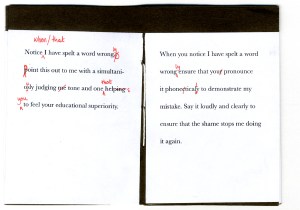 when/that
Notice I have spelt a word wrong
Point this out to me with a simultani-
only judging me tone and one helping
to feel your educational superiority.
When you notice I have spelt a word
wrong ensure that you pronounce
it phonetically to demonstrate my
mistake. Say it loudly and clearly to
ensure that the shame stops me doing
it again.